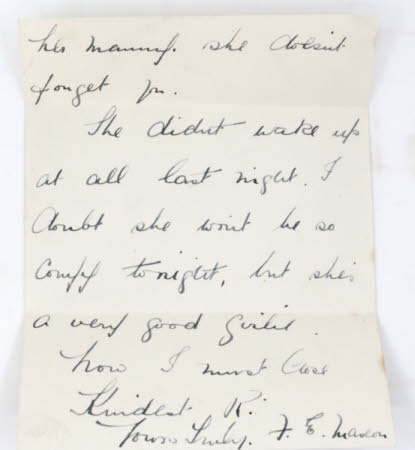 her mammy. she doesn't
forget you.
She didn't wake up
at all last night. I
doubt she wont be so
comfy tonight, but she's
a very good girlie.
Now I must close
Kindest R:
Yours Truly. F. E. Maxon